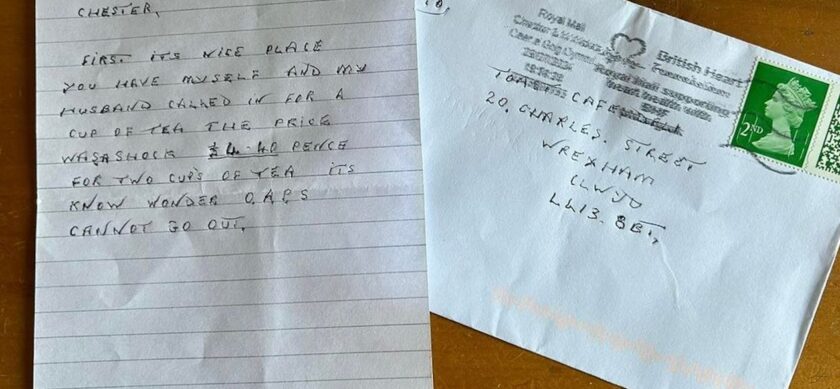 CHESTER,
FIRST. ITS NICE PLACE
YOU HAVE MYSELF AND MY
HUSBAND CALLED IN FOR A
CUP OF TEA THE PRICE
WAS A SHOCK £4.40 PENCE
FOR TWO CUPS OF TEA ITS
KNOW WONDER O.A.P.S
CANNOT GO OUT.
Royal Mail
British Heart
Foundation
Royal Mail supporting
heart health with
2ND
TOAST CAFE
20. CHARLES. STREET
WREXHAM
CLWYD
LL13. 8BT.,